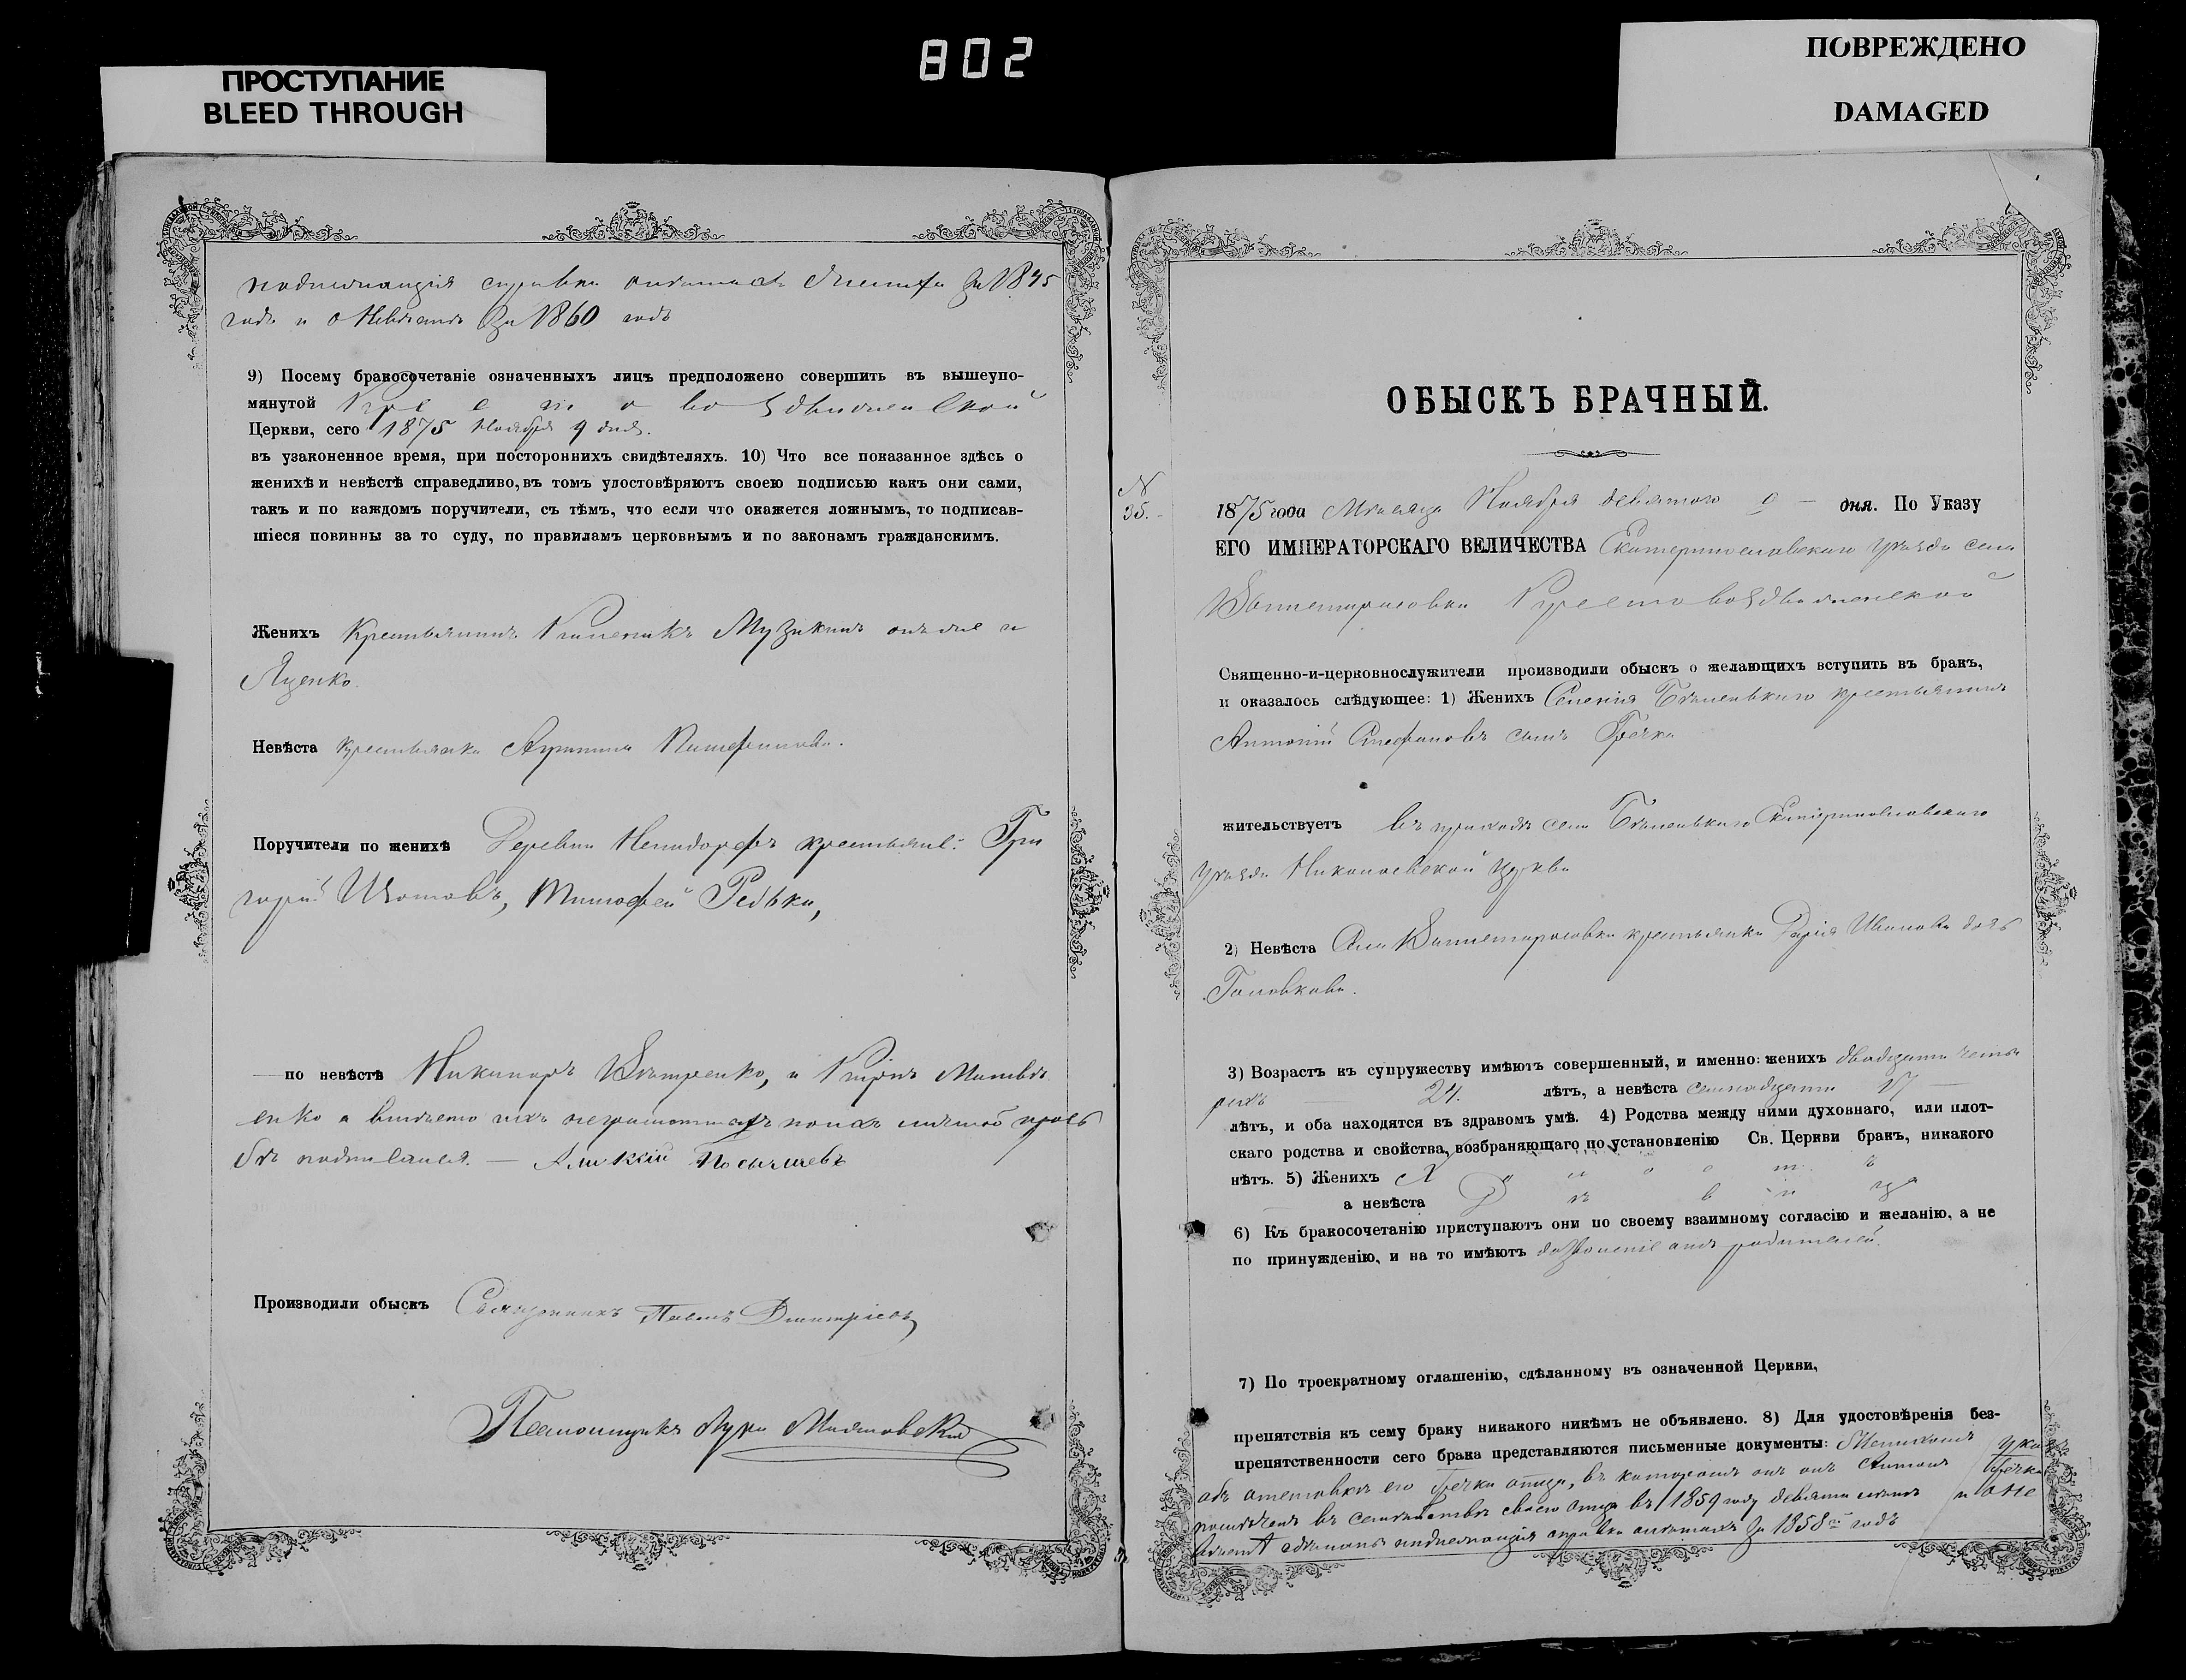 802
ПРОСТУПАНИЕ
BLEED THROUGH
ПОВРЕЖДЕНО
DAMAGED
надлежащія справки за 1845
годъ и о Невѣстѣ за 1860 годъ
9) Посему бракосочетаніе означенныхъ лицъ предположено совершить въ вышеупо-
мянутой Крестовоздвиженской
Церкви, сего 1875 Ноября 9 дня.
въ узаконенное время, при постороннихъ свидѣтеляхъ. 10) Что все показанное здѣсь о
женихѣ и невѣстѣ справедливо, въ томъ удостовѣряютъ своею подписью какъ они сами,
такъ и по каждомъ поручители, съ тѣмъ, что если что окажется ложнымъ, то подписав-
шіеся повинны за то суду, по правиламъ церковнымъ и по законамъ гражданскимъ.
Женихъ Крестьянинъ Музыкинъ онъ же и
Яценко.
Невѣста крестьянка
Поручители по женихѣ Деревни крестьяне: Гри
горій Изотовъ, Тимофей Редька,
по невѣстѣ Никаноръ Вѣтренко, и Кирилъ Матвѣ
енко а вмѣсто ихъ неграмотныхъ по ихъ личной прось
бѣ подписался. — Алексій
Производили обыскъ Священникъ Павелъ Дмитріевъ
Псаломщикъ Лука
ОБЫСКЪ БРАЧНЫЙ.
N
35. -
1875 года Мѣсяца Ноября девятого 9 — дня. По Указу
ЕГО ИМПЕРАТОРСКАГО ВЕЛИЧЕСТВА Екатеринославскаго уѣзда села
Вышетарасовки Крестовоздвиженской
Священно-и-церковнослужители производили обыскъ о желающихъ вступить въ бракъ,
и оказалось слѣдующее: 1) Женихъ Селенія Бѣленькаго крестьянинъ
Антоній Стефановъ сынъ Гречка
жительствуетъ въ приходѣ села Бѣленькаго Екатеринославскаго
уѣзда Николаевской церкви
2) Невѣста Села Вышетарасовки крестьянка Дарія Иванова дочь
Головкова.
3) Возрастъ къ супружеству имѣютъ совершенный, и именно: женихъ двадцати четы
рехъ — 24. лѣтъ, а невѣста семнадцати 17 —
лѣтъ, и оба находятся въ здравомъ умѣ. 4) Родства между ними духовнаго, или плот-
скаго родства и свойства, возбраняющаго по установленію Св. Церкви бракъ, никакого
нѣтъ. 5) Женихъ Холостъ
а невѣста Дѣвица
6) Къ бракосочетанію приступаютъ они по своему взаимному согласію и желанію, а не
по принужденію, и на то имѣютъ дозволеніе отъ родителей.
7) По троекратному оглашенію, сдѣланному въ означенной Церкви,
препятствія къ сему браку никакого никѣмъ не объявлено. 8) Для удостовѣренія без-
препятственности сего брака представляются письменные документы: Женихомъ указъ
объ отставкѣ его Гречки отца, въ которомъ онъ Антонъ Гречка
помѣченъ въ семействѣ своего отца въ 1859 году девяти лѣтъ и о не
вѣстѣ сдѣлана надлежащая справка за 1858й годъ